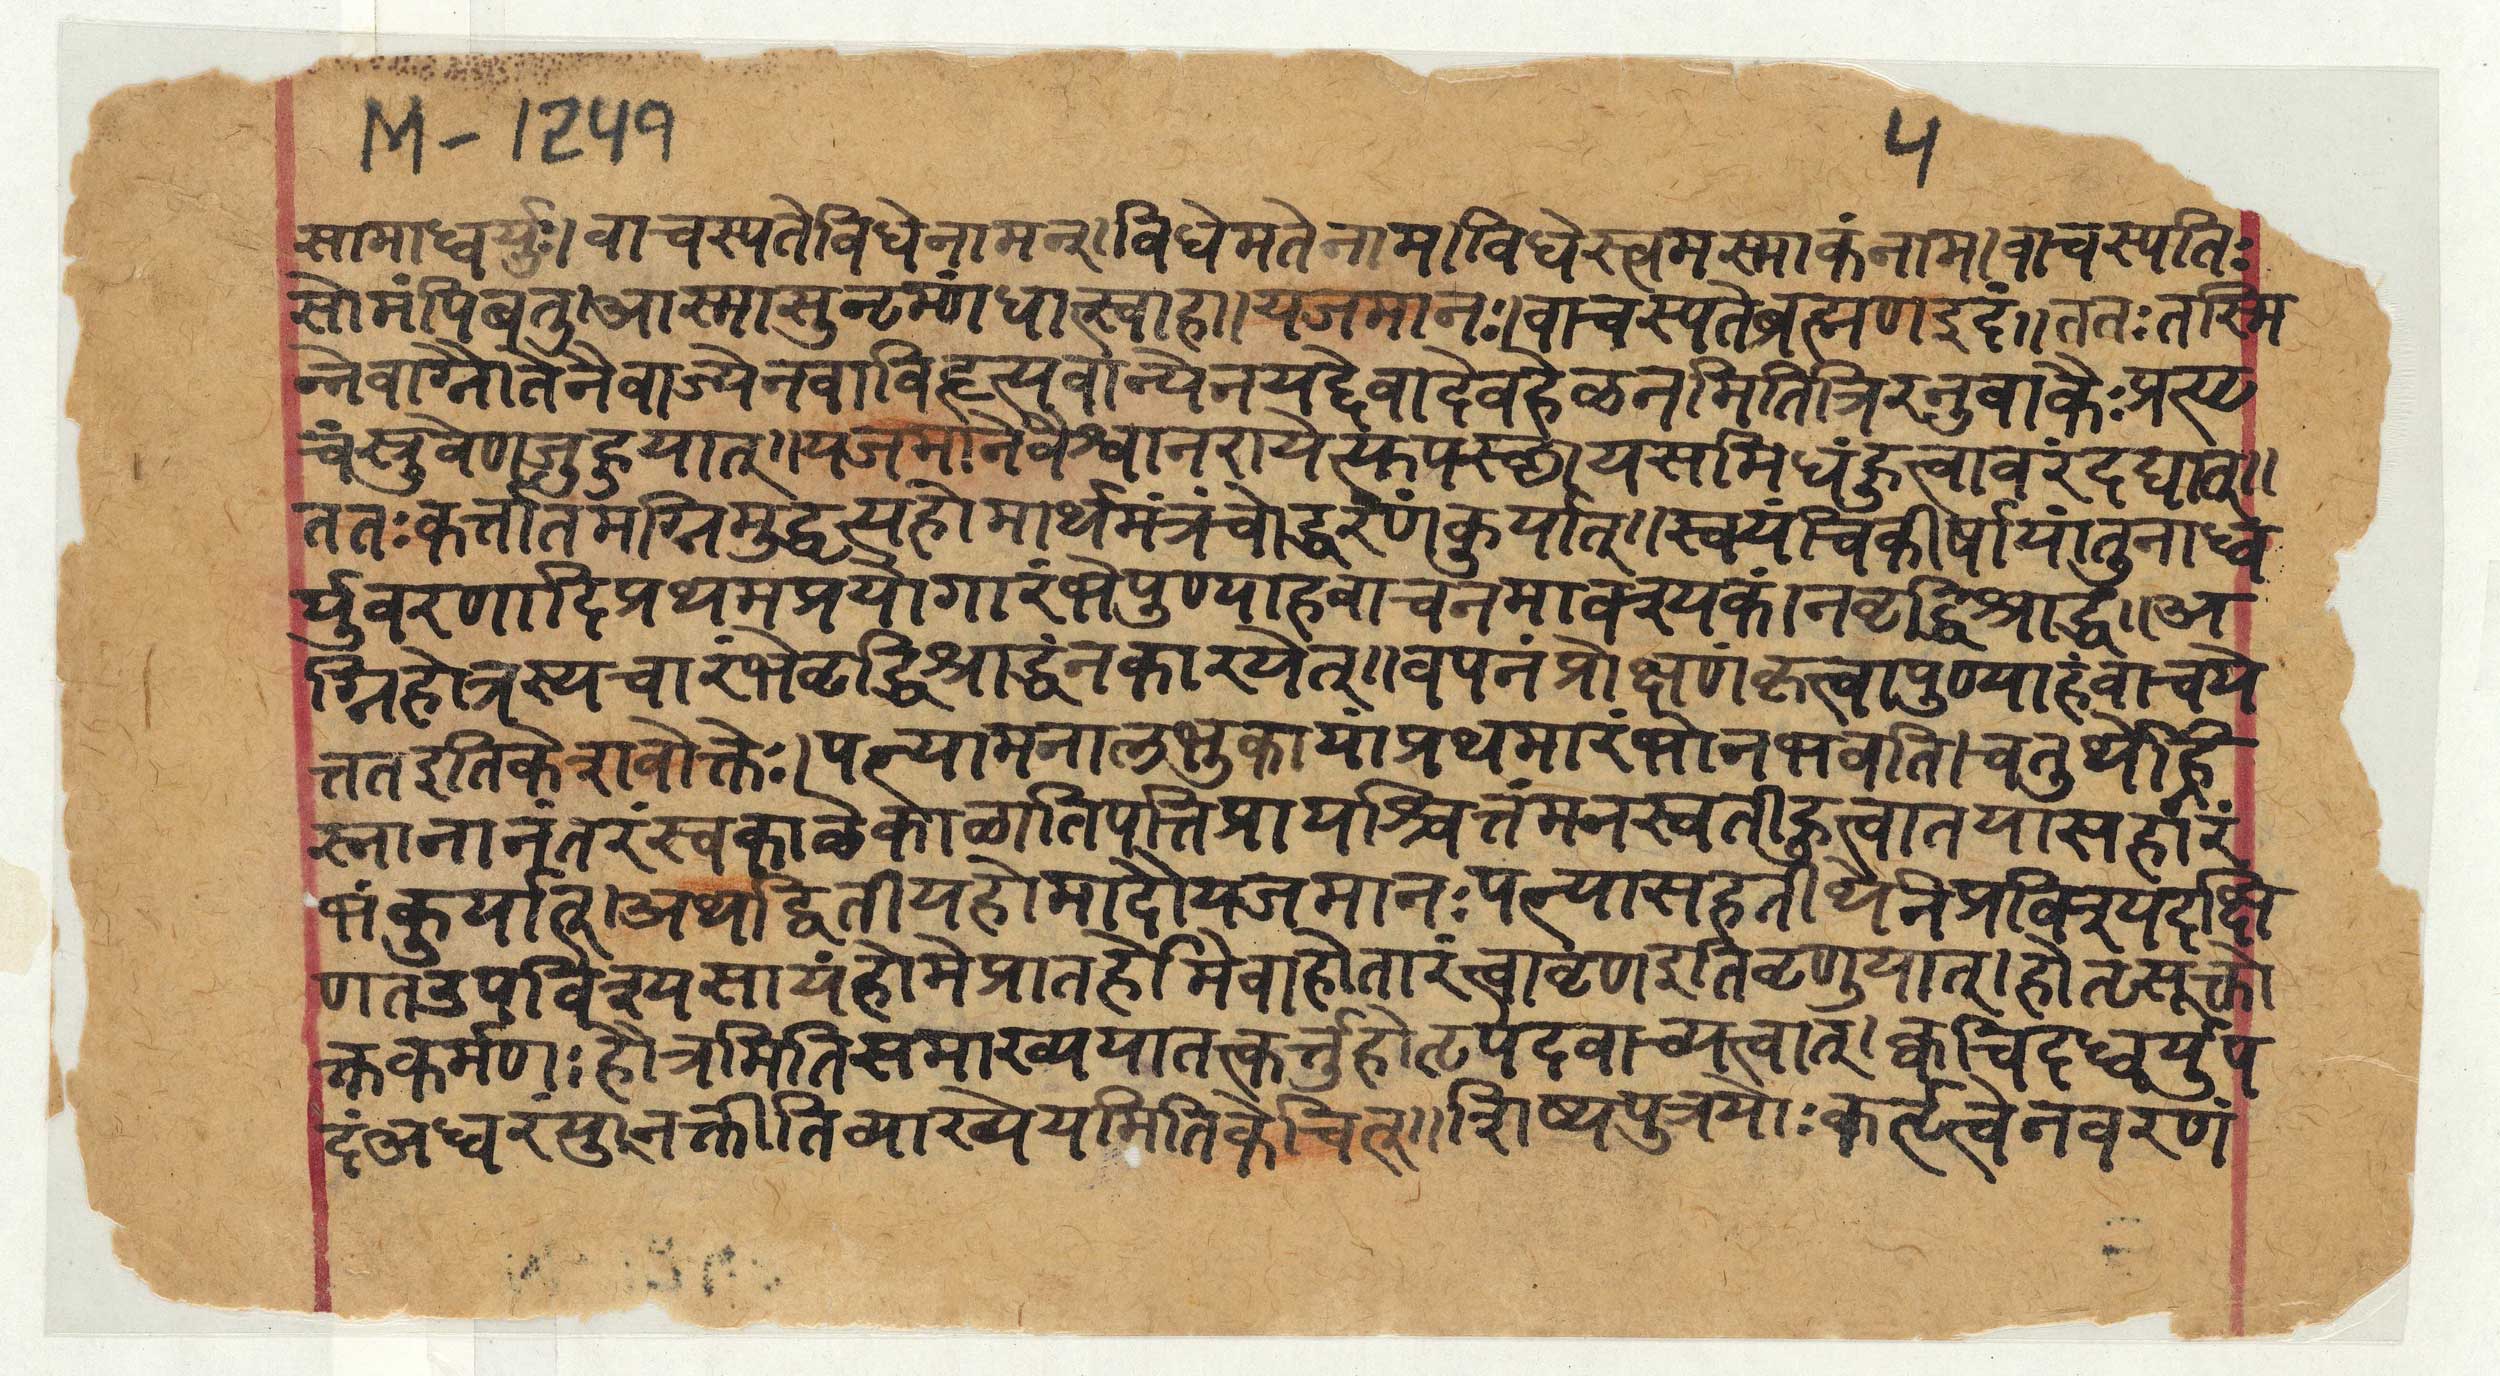 M-1249
५
सामाध्वर्युः। वाचस्पतेविधेनामन्। विधेमतेनाम। विधेस्त्वमस्माकंनाम। वाचस्पतिः
सोमंपिबतु। आस्मासुनृम्णंधात्स्वाहा। यजमानः। वाचस्पतेब्रह्मणइदं॥ ततःतस्मि
न्नेवाग्नौतेनैवाज्येनवाविहृत्यवान्येनयद्देवादेवहेळनमितित्रिरनुवाकैःप्रत्यृ
चंस्रुवेणजुहुयात्॥ यजमानेवैश्वानरायेत्युपस्थायसमिधंहुत्वावरंदद्यात्॥
ततःकर्त्तातमग्निमुद्धृत्यहोमार्थमंत्रंचोद्धरणंकुर्यात्॥ स्वयंचिकीर्षायांतुनाध्व
र्युवरणादिप्रथमप्रयोगारंभेपुण्याहवाचनमावश्यकं। नवृद्धिश्राद्धं॥ अ
ग्निहोत्रस्यचारंभेवृद्धिश्राद्धंनकारयेत्॥ वपनंप्रोक्षणंकृत्वापुण्याहंवाचये
त्ततइतिकेशवोक्तेः। पत्न्यामनालंभुकायांप्रथमारंभोनभवति। चतुर्थेह्नि
स्नानानंतरंस्वकाळेकाळातिपत्तिप्रायश्चित्तंमनस्वतींहुत्वातयासहारं
भंकुर्यात्। अथद्वितीयहोमादौयजमानःपत्न्यासहतीर्थेनप्रविश्यदक्षि
णतउपविश्यसायंहोमेप्रातर्होमेवाहोतारंत्वावृणइतिवृणुयात्। होतृसूक्तो
क्तकर्मणःहौत्रमितिसमाख्ययातत्कर्त्तुर्होतृपदवाच्यत्वात्। क्वचिदध्वर्युप
दंअध्वरंयुनक्तीतिव्याख्येयमितिकेचित्॥ शिष्यपुत्रयोःकर्तृत्वेनवरणं